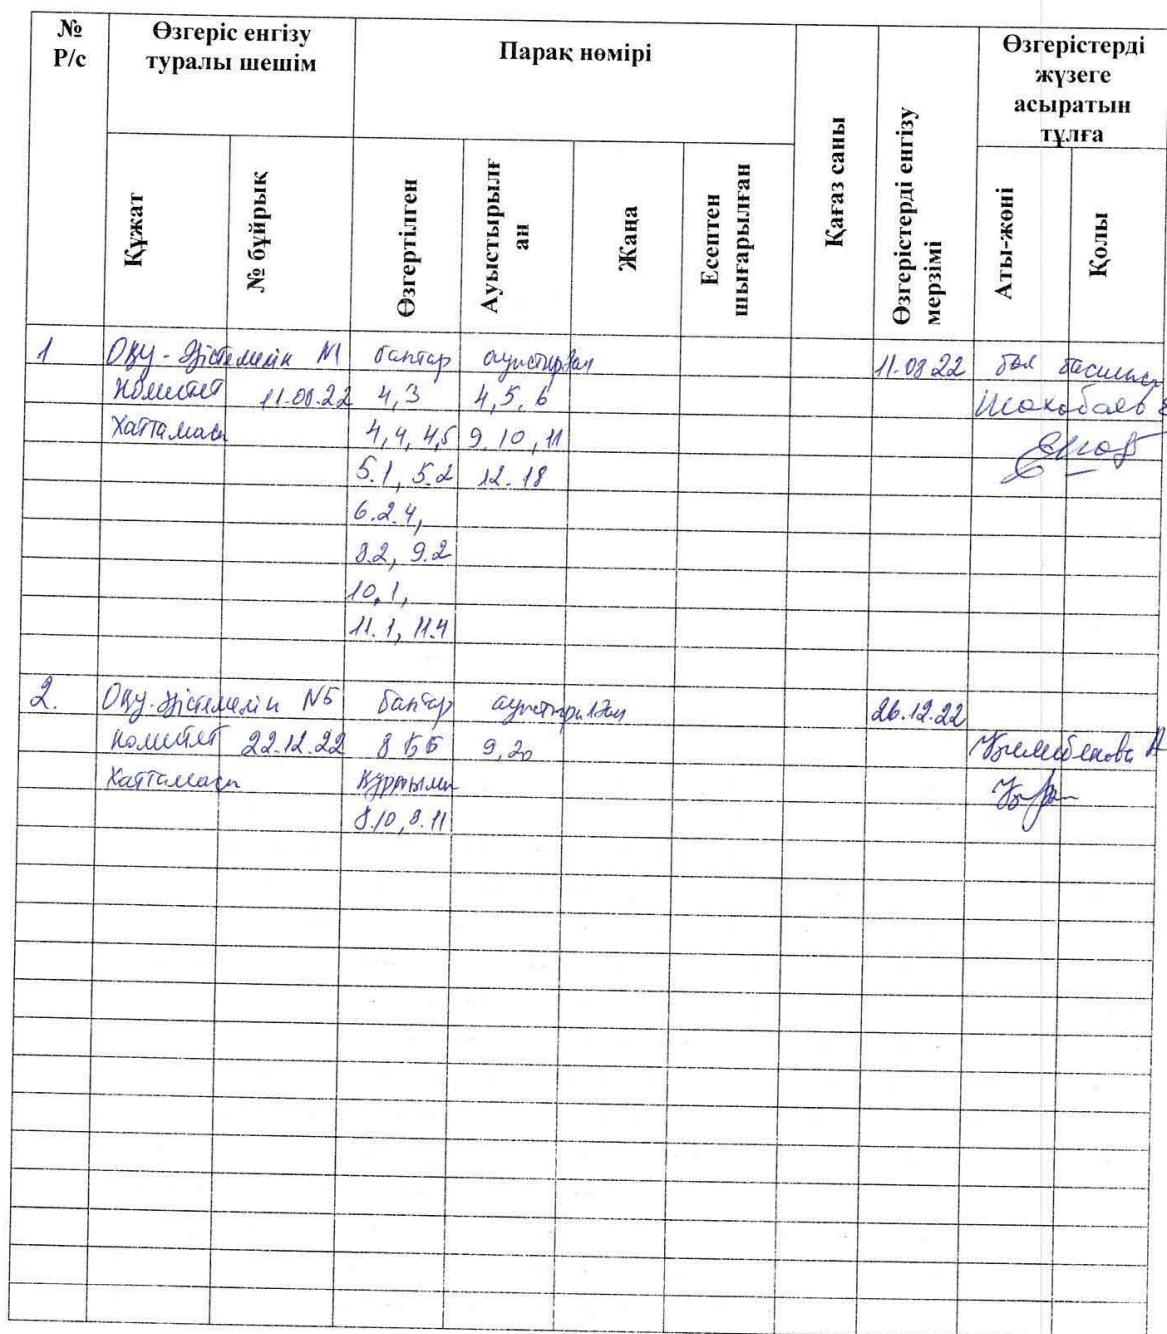 № Р/с Өзгеріс енгізу туралы шешім Парақ нөмірі Қағаз саны Өзгерістерді енгізу мерзімі Өзгерістерді жүзеге асыратын тұлға
Құжат № бұйрық Өзгертілген Ауыстырылған Жаңа Есептен шығарылған Аты-жөні Қолы
1 Оқу-әдістемелік №1 баптар ауыстырылған 11.08.22 бөл басшысы
комитет 11.08.22 4,3 4,5,6
хаттамасы 4,4, 4,5 9,10,11
5.1, 5.2 12.18
6.2.4,
8.2, 9.2
10.1,
11.1, 11.4
2. Оқу-әдістемелік №5 баптар ауыстырылған 26.12.22
комитет 22.12.22 9,20
хаттамасы
8.10, 8.11